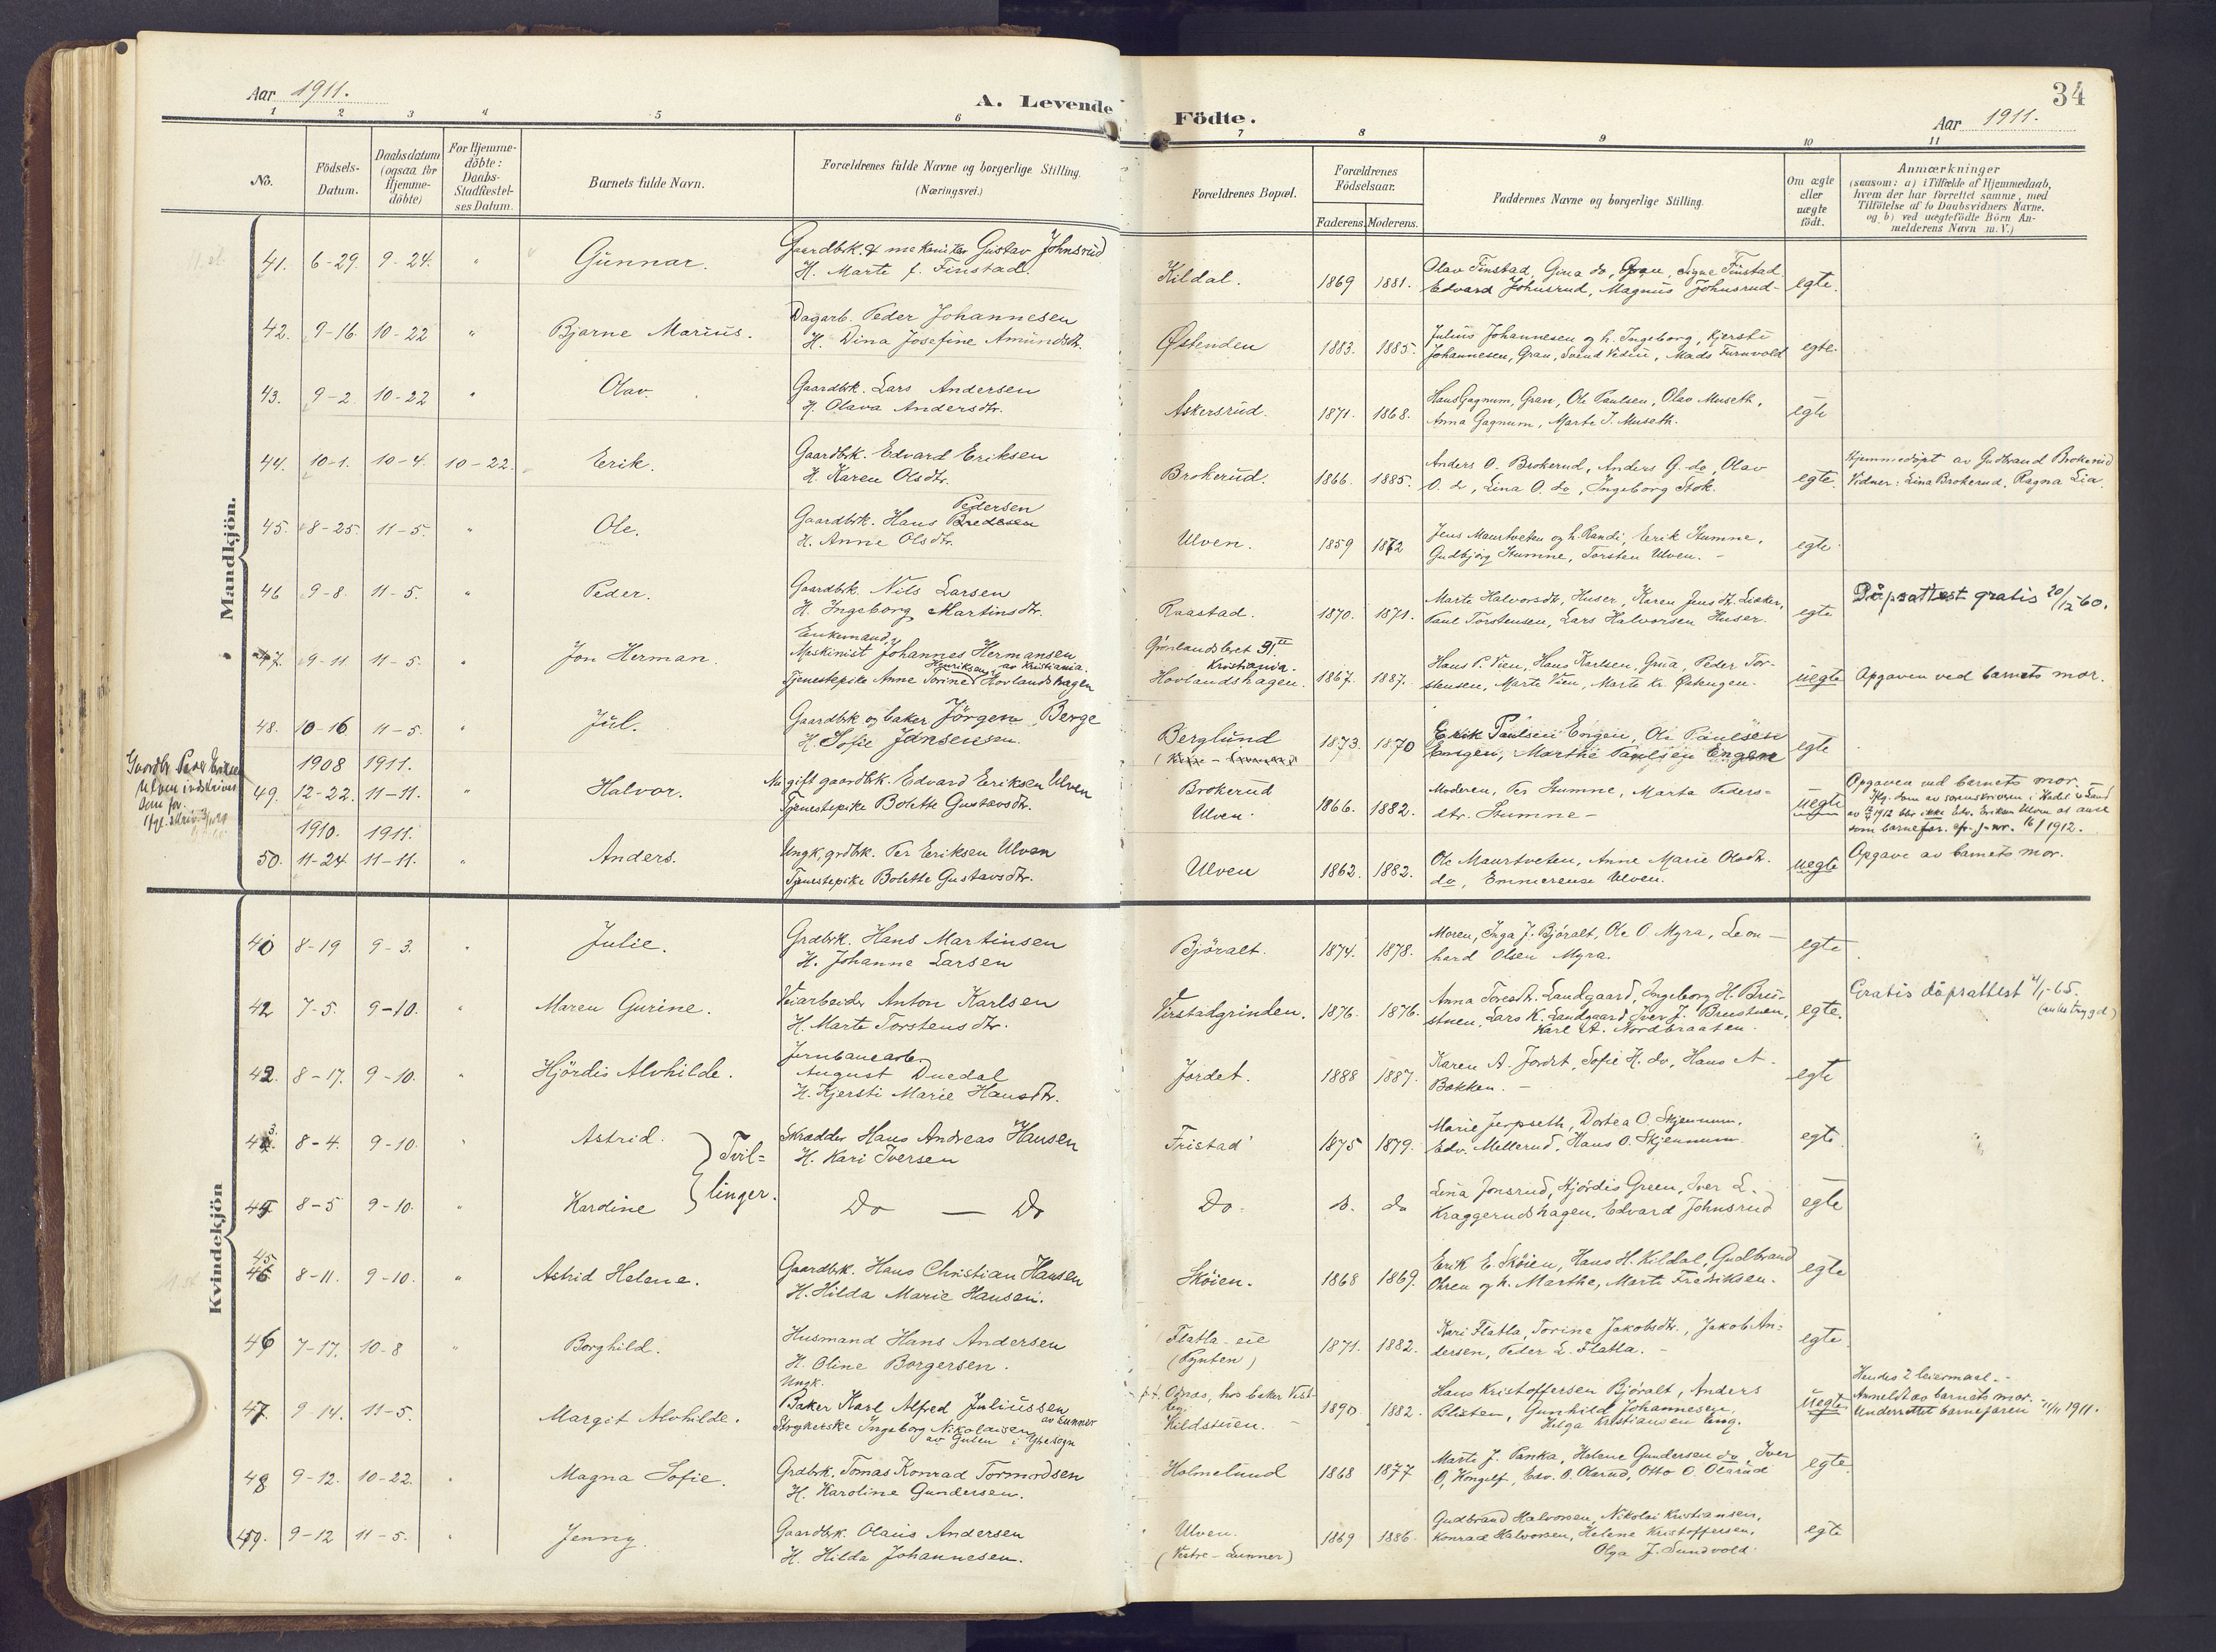 Aar 1911.
A. Levende
Födte.
34
Aar 1911.
1 2 3 4 5 6 7 8 9 10 11
No.
Födsels-Datum.
Daabsdatum (ogsaa for Hjemme-döbte)
For Hjemme-döbte: Daabs-Stadfæstel-ses Datum.
Barnets fulde Navn.
Forældrenes fulde Navne og borgerlige Stilling. (Næringsvei.)
Forældrenes Bopæl.
Forældrenes Födselsaar.
Faderens. Moderens.
Faddernes Navne og borgerlige Stilling.
Om ægte eller uægte födt.
Anmærkninger
(saasom: a) i Tilfælde af Hjemmedaab, hvem der har forrettet samme, med Tilföielse af to Daabsvidners Navne. og b) ved uægtefödte Börn An-melderens Navn m. V.)
Mandkjön.
41. 6-29. 9-24. " Gunnar.
Gaardbrk. & mekaniker Gustav Johnsrud
H. Marte f. Finstad.
Kildal. 1869 1881.
Olav Finstad, Gina do, Gran, Signe Finstad
Edvard Johnsrud, Magnus Johnsrud- egte.
42. 9-16 10-22 " Bjarne Marius.
Dagarb. Peder Johannesen
H. Dina Josefine Amundsdtr.
Østenden 1883. 1885.
Julius Johannesen og h. Ingeborg, Kjersti
Johannesen, Gran, Svend Vedin, Mads Furuvold egte.
43. 9-2 10-22 " Olav.
Gaardbrk. Lars Andersen
H. Olava Andersdtr.
Askersrud. 1871. 1868.
Hans Gagnum, Gran, Ole Paulsen, Olav Museth,
Anna Gagnum, Marte J. Museth. egte
44. 10-1. 10-4. 10-22. Erik.
Gaardbrk. Edvard Eriksen
H. Karen Olsdtr.
Brokerud. 1866. 1885.
Anders O. Brokerud, Anders G. do, Olav
O. do, Lina O. do, Ingeborg Stok. egte.
Hjemmedöpt av Gudbrand Brokerud
Vidner: Lina Brokerud, Ragna Lia.
45. 8-25. 11-5. " Ole.
Pedersen
Gaardbrk. Hans Bredesen
H. Anne Olsdtr.
Ulven. 1859 1872
Jens Maurtveten og h. Randi, Erik Stumne,
Gudbjörg Stumne, Torsten Ulven. - egte
46 9-8. 11-5. " Peder.
Gaardbrk. Nils Larsen
H. Ingeborg Martinsdtr.
Raastad. 1870. 1871.
Marte Halvorsdtr, Huser, Karen Jensdtr. Lisker,
Paul Torstensen, Lars Halvorsen Huser. egte
Dåpsattest gratis 20/12-60.
47. 9-11 11-5. " Jon Herman.
Enkemand,
Maskinist Johannes Hermansen
Henriksen, av Kristiania.
Tjenestepike Anne Torine Hovlandshagen
Grönlandsleret 31 II
Kristiania.
Hovlandshagen. 1867. 1887.
Hans P. Vien, Hans Karlsen, Grua, Peder Tor-
stensen, Marte Vien, Marte Kr. Østengen. uegte
Opgaven ved barnets mor.
48. 10-16 11-5. " Jul.
Gaardbrk og baker Jörgen Berge
H. Sofie Jansen
Berglund 1873. 1870
Erik Paulsen Engen, Ole Paulsen
Engen, Marthe Paulsen Engen egte
Gaardbr. Peder Eriksen
Ulven indskrives
som far.
1908 1911.
49. 12-22. 11-11. " Halvor.
Nu gift gaardbrk. Edvard Eriksen Ulven
Tjenestepike Bolette Gustavsdtr.
Brokerud
Ulven. 1866. 1882.
Moderen, Per Stumne, Marta Peders-
dtr. Stumne- uegte
Opgaven ved barnets mor.
Iflg. dom av sorenskriveren i Hadel. & Land
av 1912 blir ikke Edv. Eriksen Ulven at anse
som barnefar. cfr. j-nr. 16/1912.
1910. 1911.
50. 11-24 11-11. " Anders.
Ungk, grdbrk. Per Eriksen Ulven
Tjenestepike Bolette Gustavsdtr.
Ulven 1862. 1882.
Ole Maurtveten, Anne Marie Olsdtr.
do, Emmerense Ulven. uegte
Opgave av barnets mor.
Kvindekjön
40 8-19 9-3. " Julie.
Grdbrk. Hans Martinsen
H. Johanne Larsen
Björalt. 1874. 1878.
Moren, Inga J. Björalt, Ole O. Myra, Leon-
hard Olsen Myra. egte
42 7-5. 9-10. " Maren Gurine.
Veiarbeider Anton Karlsen
H. Marte Torstensdtr.
Virstadgrinden. 1876. 1876.
Anna Toresdtr. Sandgaard, Ingeborg H. Bru-
stuen, Lars K. Sandgaard, Iver J. Brustuen,
Karl A. Nordbraaten. egte.
Gratis dåpsattest 21/1-65.
42. 8-17. 9-10. " Hjördis Alvhilde.
Jernbanearb.
August Duedal
H. Kjersti Marie Hansdtr.
Jordet. 1888 1887.
Karen A. Jordet, Sofie H. do, Hans A.
Bakken. - egte
43. 8-4. 9-10. " Astrid. } Tvil=
Skrædder Hans Andreas Hansen
H. Kari Iversen
Fristad 1875 1879.
Marie Jerpseth, Dortea O. Skjennum,
Edv. Mellerud, Hans O. Skjennum egte
44 8-5 9-10. " Kardine } linger.
Do — Do
Do. do. do
Lina Jonsrud, Hjördis Green, Iver L.
Kraggerudshagen, Edvard Johnsrud egte
45. 8-11. 9-10. " Astrid Helene.
Gaardbrk. Hans Christian Hansen
H. Hilda Marie Hansen.
Sköien. 1868 1869.
Erik E. Sköien, Hans H. Kildal, Gudbrand
Ohren og h. Marthe, Marte Fredriksen. egte
46 7-17. 10-8 " Borghild.
Husmand Hans Andersen
H. Oline Borgersen.
Flatla-eie
(Pynten) 1871. 1882.
Kari Flatla, Torine Jakobsdtr., Jakob An=
dersen, Peder L. Flatla. - egte
47. 9-14. 11-5. Margit Alvhilde.
Ungk.
Baker Karl Alfred Juliussen
av Lunner
Strykerske Ingeborg Nikolaisen
av Gulen i Ytresogn
p.t. Odnæs, hos baker Vest-
Kildstuen. - 1890 1882.
Hans Kristoffersen Björalt, Anders
Blisten, Gunhild Johannesen,
Helga Kristiansen Eng. uegte
Hendes 2 leiermaal.-
Anmeldt av barnets mor.
Underrettet barnefaren 11/11 1911.
48 9-12. 10-22. " Magna Sofie.
Grdbrk. Tomas Konrad Tormodsen
H. Karoline Gundersen.
Holmelund 1868 1877
Marte J. Panka, Helene Gundersen do, Iver
O. Kongelf, Edv. O. Olsrud, Otto O. Olsrud egte.
49. 9-12 11-5. " Jenny.
Gaardbrk. Olaus Andersen
H. Hilda Johannesen.
Ulven.
(Vestre-Lunner) 1869 1886.
Gudbrand Halvorsen, Nikolai Kristiansen,
Konrad Halvorsen, Helene Kristoffersen,
Olga J. Sundvold. egte